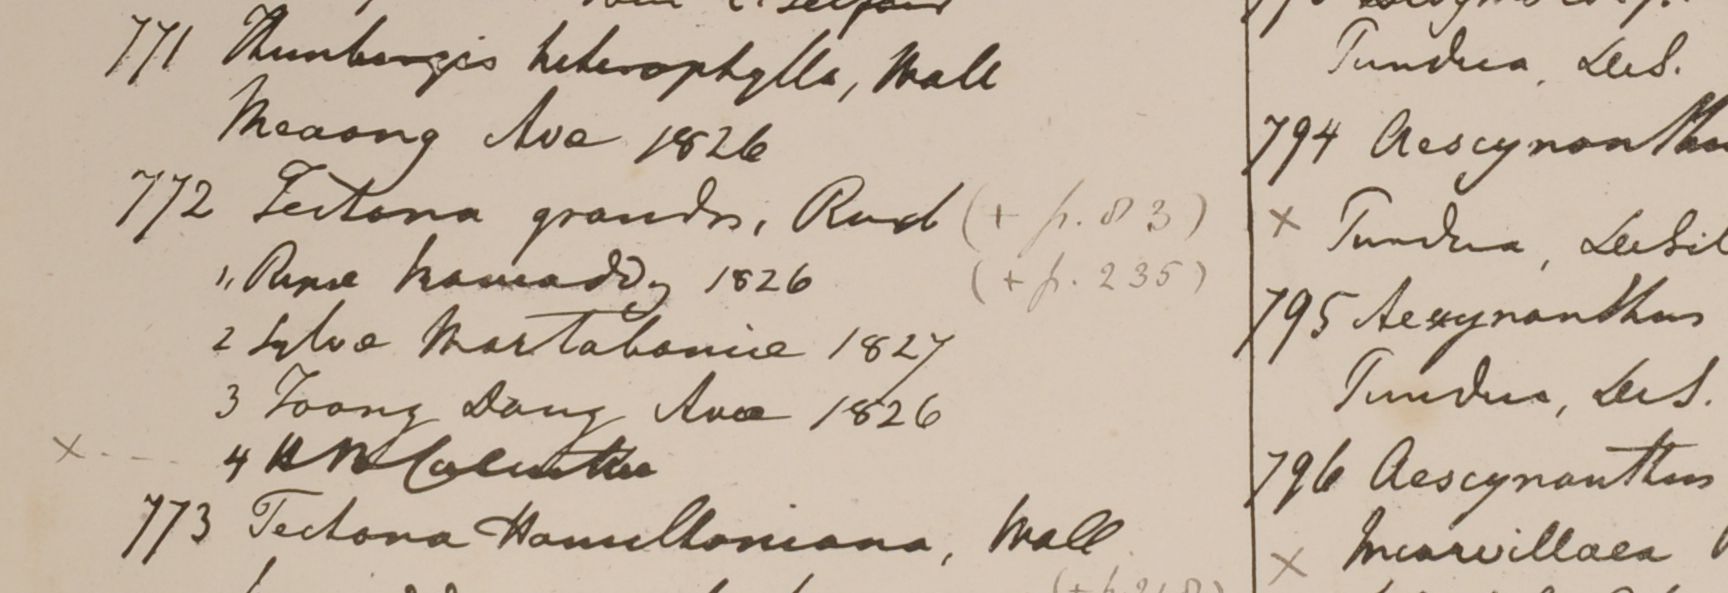 771 Thunbergia heterophylla, Wall
Meaong Ava 1826
772 Tectona grandis, Rox (+ p. 83)
1, Ripae 1826 (+ p. 235)
2 Sylva Martabaniae 1827
3 Toong Dong Ava 1826
x 4 H B Calcuttae
773 Tectona Hamiltoniana, Wall
Tundua, DeS.
794 Aescynanthu
x Tundua, DeSil
795 Aescynanthus
Tundua, DeS.
796 Aescynanthus
x